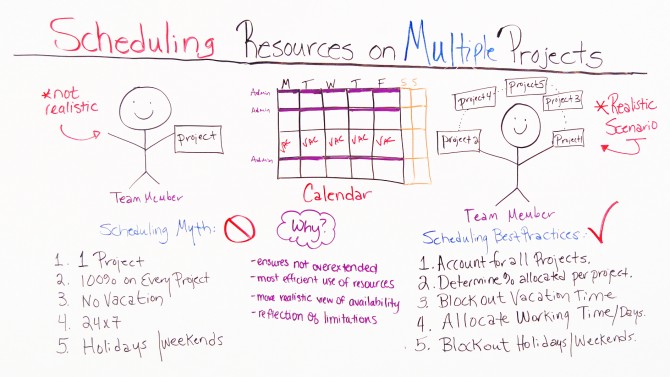 Scheduling Resources on Multiple Projects
*not realistic
project
Team Member
M T W T F S S
Admin
Admin
VAC VAC VAC VAC VAC
Admin
Calendar
project4
project5
project3
project2
Project1
*Realistic Scenario
Team Member
Scheduling Myth:
1. 1 Project
2. 100% on Every Project
3. No Vacation
4. 24x7
5. Holidays/Weekends
Why?
-ensures not overextended
-most efficient use of resources
-more realistic view of availability
-reflection of limitations
Scheduling Best Practices:
1. Account for all Projects.
2. Determine % allocated per project.
3. Blockout Vacation Time
4. Allocate Working Time/Days.
5. Blockout Holidays/Weekends.